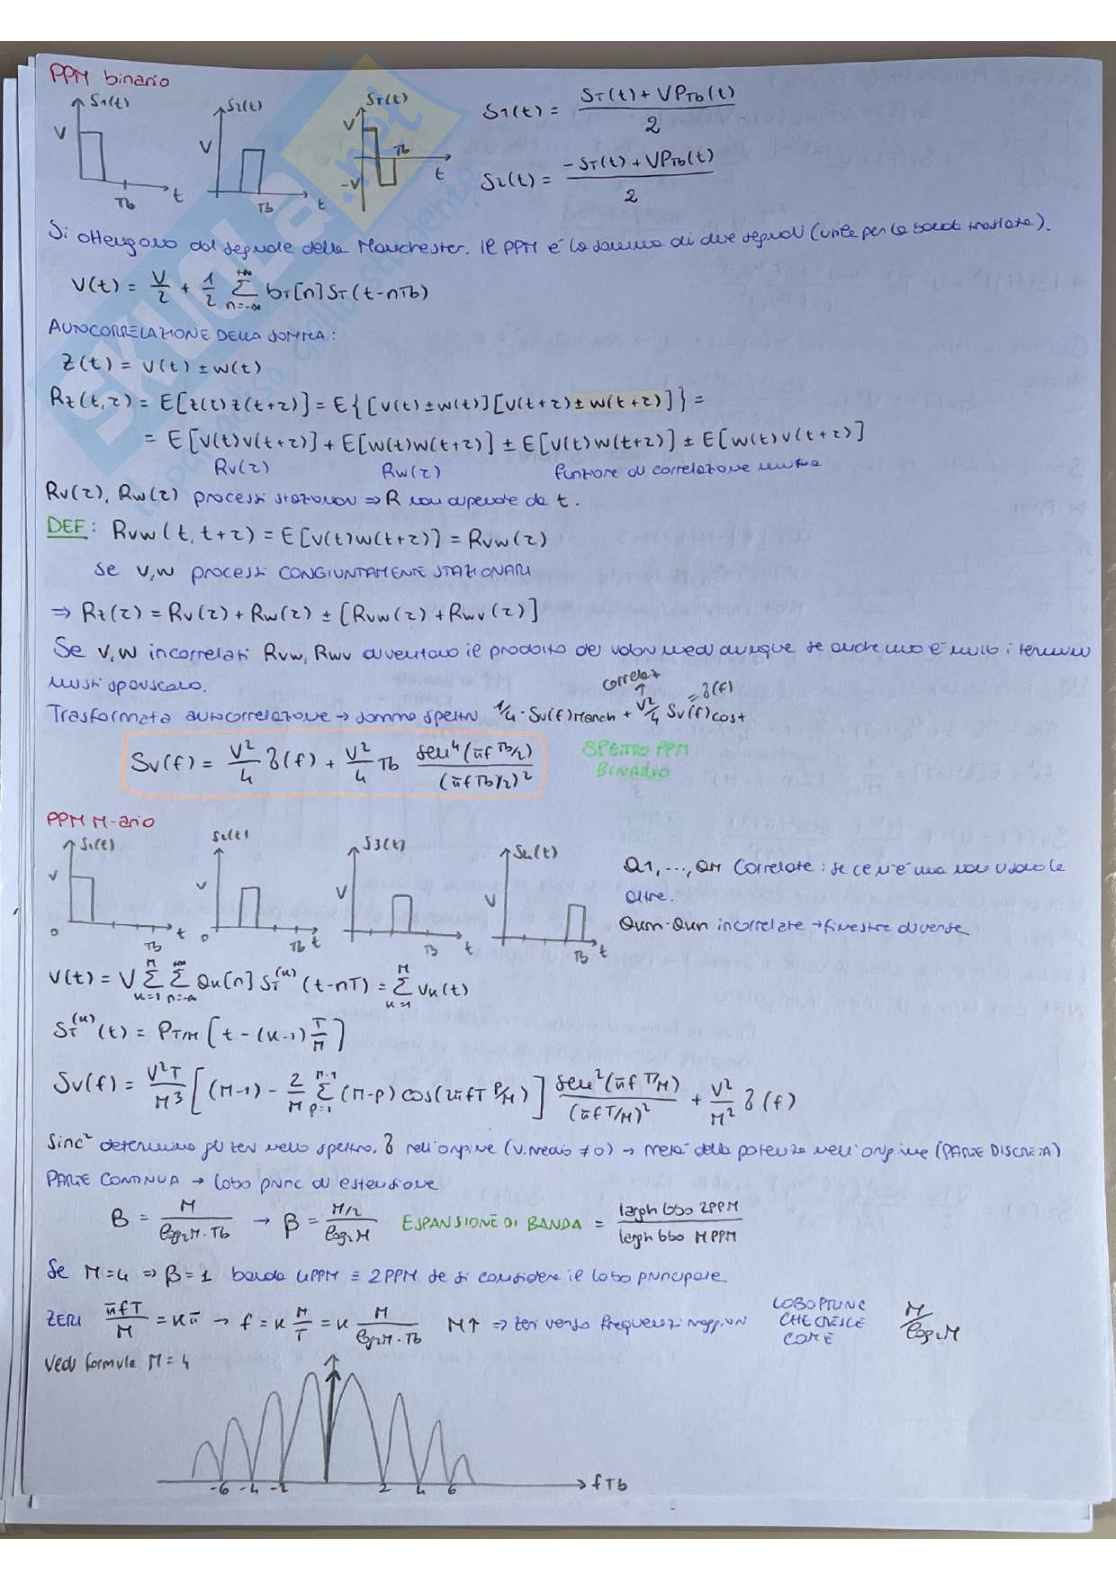 PPM binario
S1(t) S2(t) ST(t)
V V V Tb
-V t
Tb t Tb t
S1(t) = (ST(t) + VPTb(t)) / 2
S2(t) = (-ST(t) + VPTb(t)) / 2
Si ottengono dal segnale della Manchester. Il PPM è la somma di due segnali (utile per la banda traslata).
V(t) = V/2 + 1/2 Σ_{n=-∞}^{+∞} bT[n] ST(t-nTb)
AUTOCORRELAZIONE DELLA SOMMA:
Z(t) = v(t) ± w(t)
Rz(t,τ) = E[z(t) z(t+τ)] = E{[v(t) ± w(t)][v(t+τ) ± w(t+τ)]} =
= E[v(t)v(t+τ)] + E[w(t)w(t+τ)] ± E[v(t)w(t+τ)] ± E[w(t)v(t+τ)]
Rv(τ) Rw(τ) funzione di correlazione mutua
Rv(τ), Rw(τ) processi stazionari ⇒ R non dipende da t.
DEF: Rvw(t, t+τ) = E[v(t)w(t+τ)] = Rvw(τ)
se v,w processi CONGIUNTAMENTE STAZIONARI
⇒ Rz(τ) = Rv(τ) + Rw(τ) ± [Rvw(τ) + Rwv(τ)]
Se v,w incorrelati Rvw, Rwv diventano il prodotto dei valori medi dunque se anche uno è nullo i termini
misti spariscono.
Trasformata autocorrelazione → somma spettri 1/4 · Sv(f)Manch + V²/4 Sv(f)cost
correlaz
= δ(f)
Sv(f) = V²/4 δ(f) + V²/4 Tb sen⁴(πf Tb/2) / (πf Tb/2)²
SPETTRO PPM
BINARIO
PPM M-ario
S1(t) S2(t) S3(t) S4(t)
V V V V
0 Tb t 0 Tb t Tb t Tb t
Q1, ..., QM Correlate: se ce n'è una non usano le
altre.
Qum-Qun incorrelate → finestre diverse
V(t) = V Σ_{k=1}^{M} Σ_{n=-∞}^{∞} Qk[n] ST^(k) (t-nT) = Σ_{k=1}^{M} Vk(t)
ST^(k)(t) = PT/M [t - (k-1) T/M]
Sv(f) = V²T/M³ [(M-1) - 2/M Σ_{p=1}^{M-1} (M-p) cos(2πfT p/M)] sen²(πf T/M) / (πfT/M)² + V²/M² δ(f)
Sinc² determina gli zeri nello spettro. δ nell'origine (v. medio ≠ 0) → metà della potenza nell'origine (PARTE DISCRETA)
PARTE CONTINUA → lobo princ di estensione
B = M / (log₂M · Tb) → β = (M/2) / log₂M ESPANSIONE DI BANDA = largh lobo 2PPM / largh lobo MPPM
Se M=4 ⇒ β=1 banda 4PPM ≡ 2PPM se si considera il lobo principale
ZERI πfT/M = kπ → f = k M/T = k M / (log₂M · Tb) M↑ ⇒ zeri verso frequenze maggiori LOBO PRINC
CHE CRESCE
COME M / log₂M
Vedi formula M=4
-6 -4 -2 2 4 6 fTb